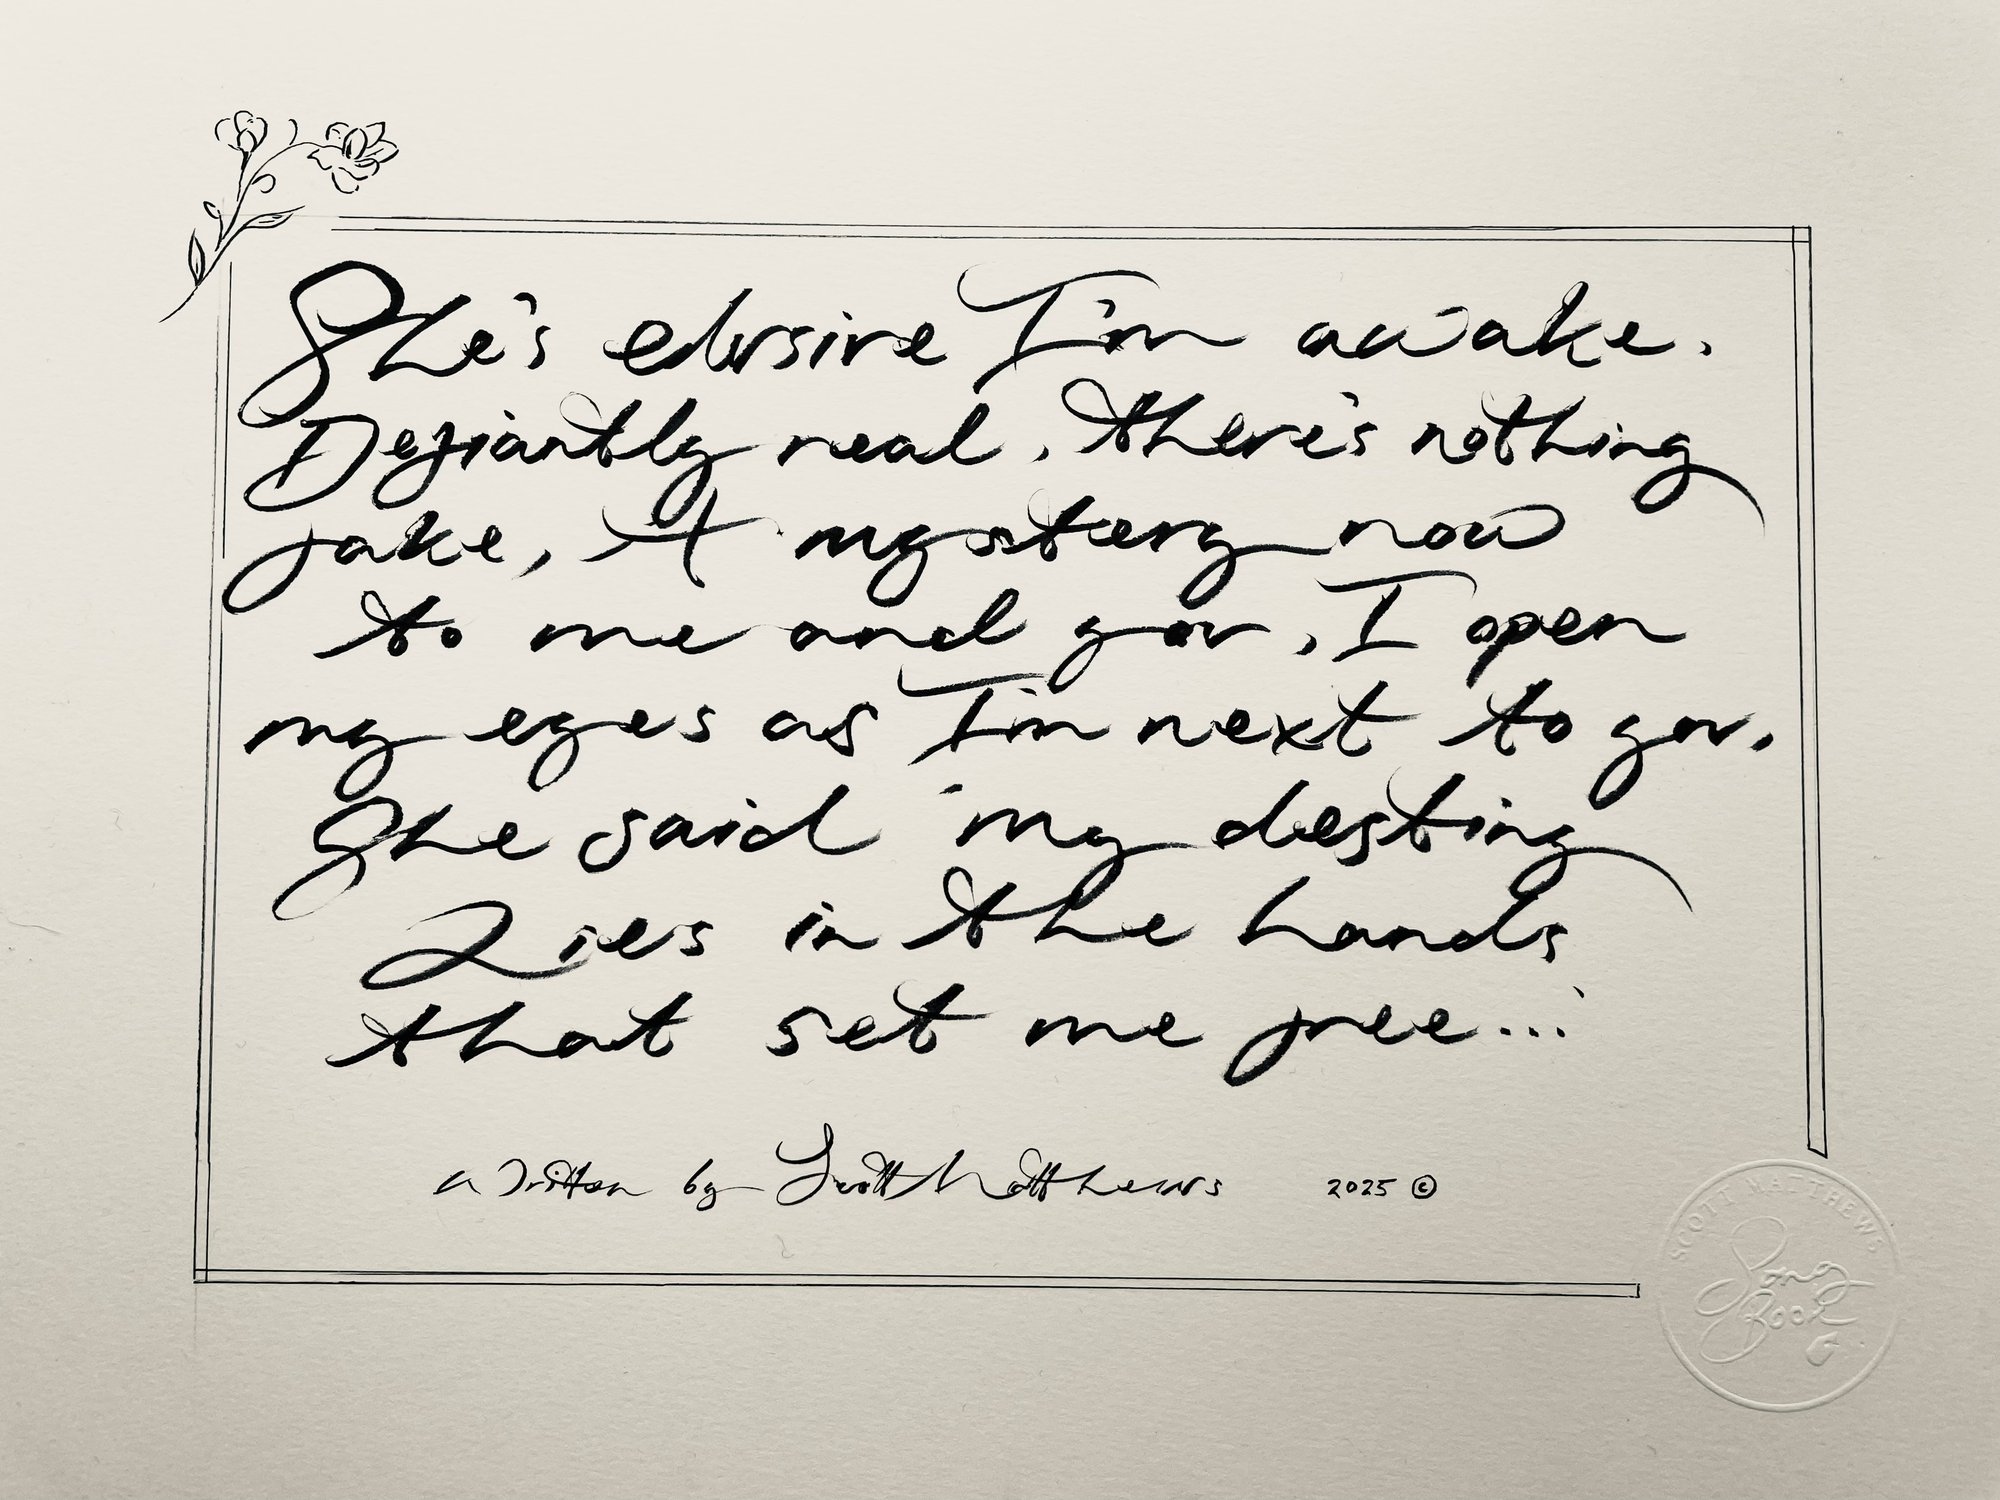 She's elusive I'm awake.
Defiantly real, there's nothing
fake, A mystery now
to me and you, I open
my eyes as I'm next to you.
She said 'my destiny
Lies in the hands
that set me free...'
written by Scott Matthews 2025 ©
SCOTT MATTHEWS
Song
Book